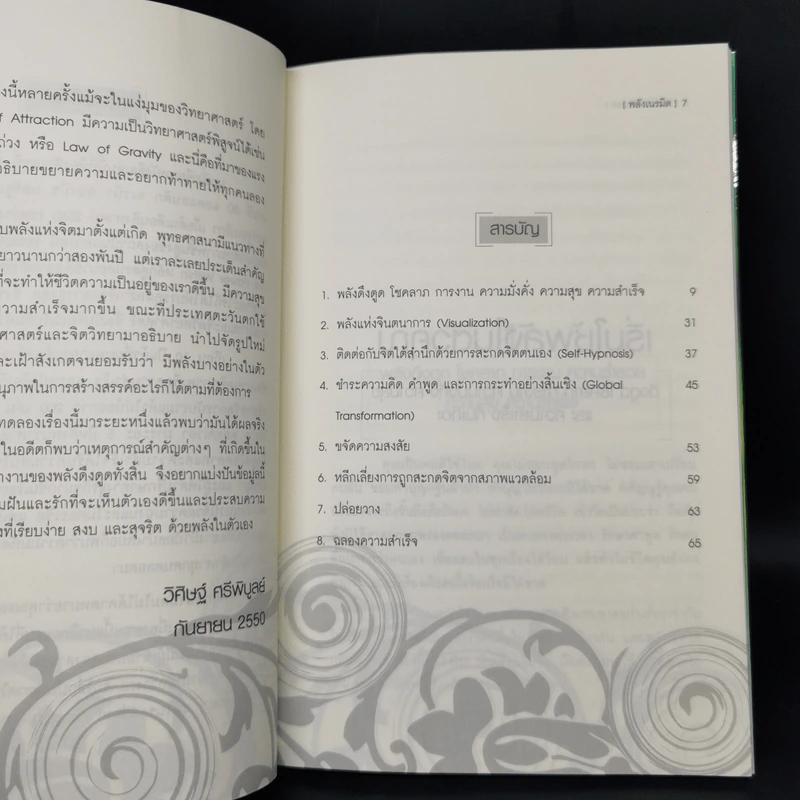 งนี้หลายครั้งแม้จะในแง่มุมของวิทยาศาสตร์ โดย
f Attraction มีความเป็นวิทยาศาสตร์พิสูจน์ได้เช่น
ถ่วง หรือ Law of Gravity และนี่คือที่มาของแรง
อธิบายขยายความและอยากท้าทายให้ทุกคนลอง
บพลังแห่งจิตมาตั้งแต่เกิด พุทธศาสนามีแนวทางที่
ยาวนานกว่าสองพันปี แต่เราละเลยประเด็นสำคัญ
ที่จะทำให้ชีวิตความเป็นอยู่ของเราดีขึ้น มีความสุข
วามสำเร็จมากขึ้น ขณะที่ประเทศตะวันตกใช้
ศาสตร์และจิตวิทยามาอธิบาย นำไปจัดรูปใหม่
ละเฝ้าสังเกตจนยอมรับว่า มีพลังบางอย่างในตัว
นุภาพในการสร้างสรรค์อะไรก็ได้ตามที่ต้องการ
ทดลองเรื่องนี้มาระยะหนึ่งแล้วพบว่ามันได้ผลจริง
ในอดีตก็พบว่าเหตุการณ์สำคัญต่างๆ ที่เกิดขึ้นใน
งานของพลังดึงดูดทั้งสิ้น จึงอยากแบ่งปันข้อมูลนี้
มฝันและรักที่จะเห็นตัวเองดีขึ้นและประสบความ
งที่เรียบง่าย สงบ และสุจริต ด้วยพลังในตัวเอง
วิศิษฐ์ ศรีพิบูลย์
กันยายน 2550
[ พลังเนรมิต ] 7
สารบัญ
1. พลังดึงดูด โชคลาภ การงาน ความมั่งคั่ง ความสุข ความสำเร็จ 9
2. พลังแห่งจินตนาการ (Visualization) 31
3. ติดต่อกับจิตใต้สำนึกด้วยการสะกดจิตตนเอง (Self-Hypnosis) 37
4. ชำระความคิด คำพูด และการกระทำอย่างสิ้นเชิง (Global 45
Transformation)
5. ขจัดความสงสัย 53
6. หลีกเลี่ยงการถูกสะกดจิตจากสภาพแวดล้อม 59
7. ปล่อยวาง 63
8. ฉลองความสำเร็จ 65